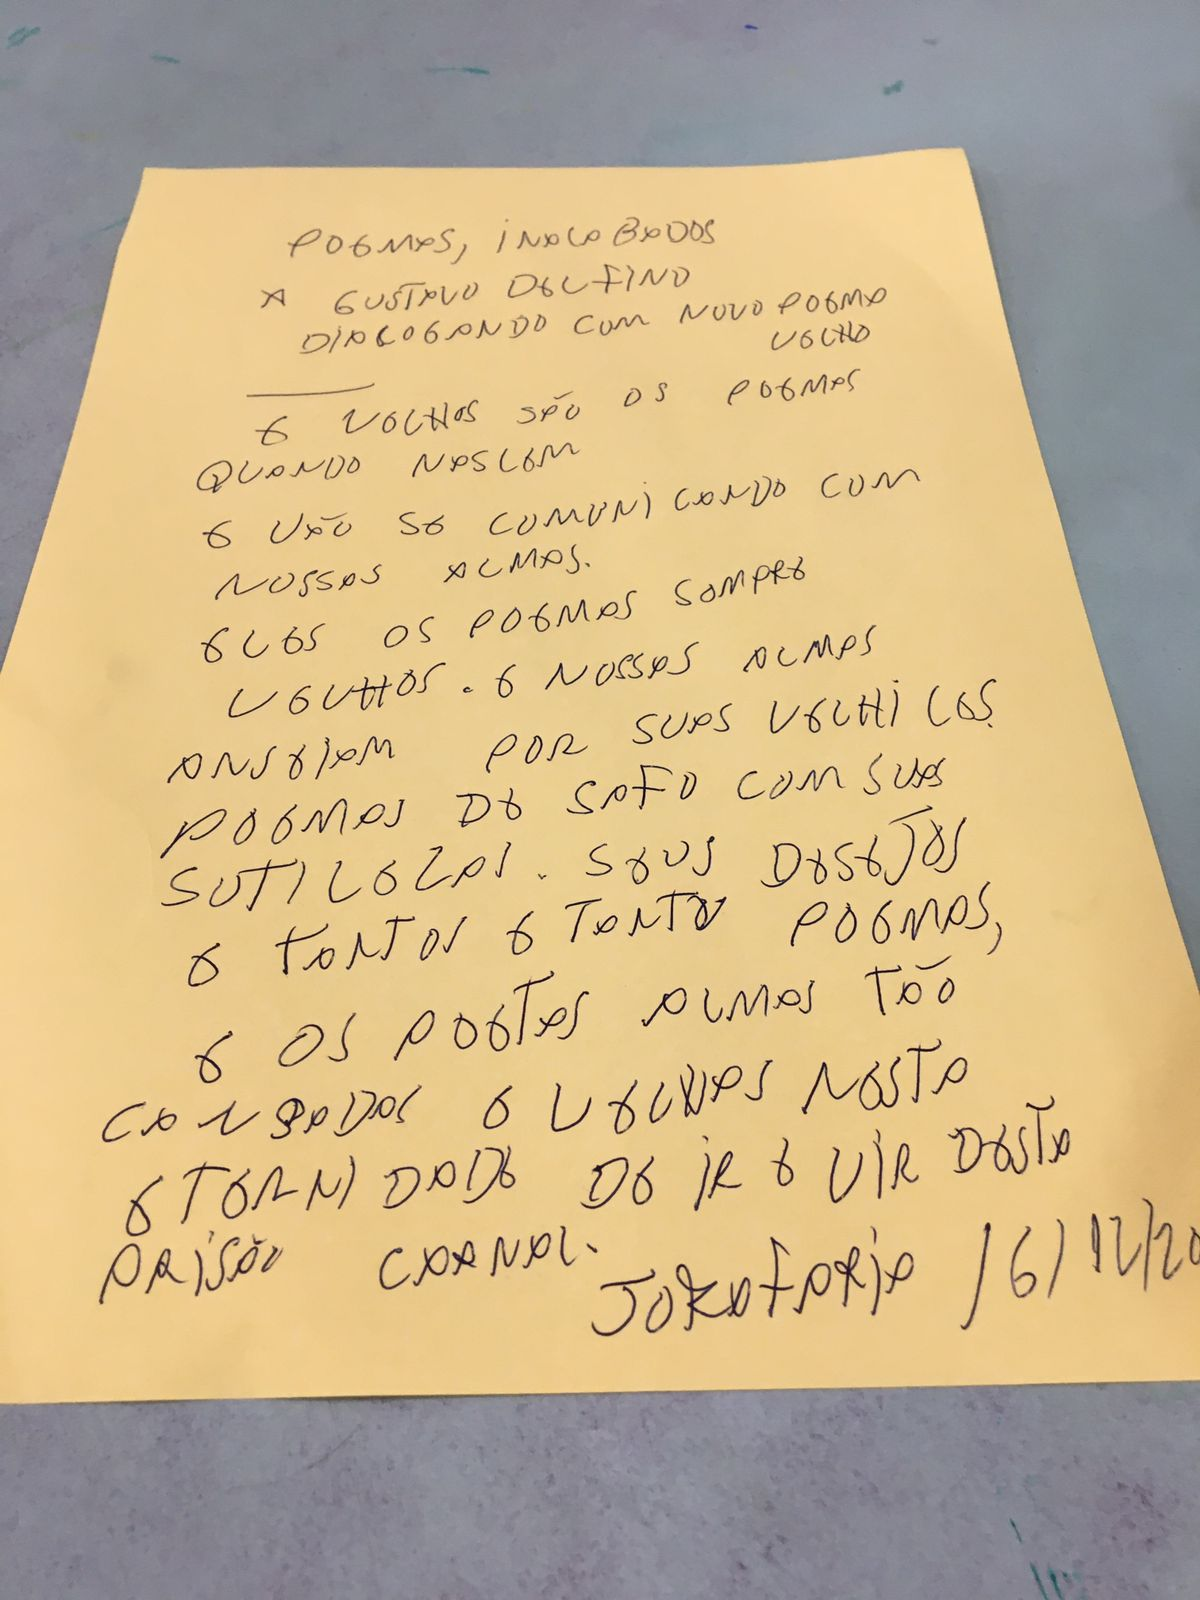 POEMAS, INACABADOS
A GUSTAVO DELFINO
DIALOGANDO COM NOVO POEMA
VELHO
E VELHOS SÃO OS POEMAS
QUANDO NASCEM
E VÃO SE COMUNICANDO COM
NOSSAS ALMAS.
ELES OS POEMAS SEMPRE
VELHOS. E NOSSAS ALMAS
ANSEIAM POR SUAS VELHICES.
POEMAS DE SAFO COM SUAS
SUTILEZAS. SEUS DESEJOS
E TANTOS E TANTO POEMAS,
E OS POETAS ALMAS TÃO
CANSADAS E VELHAS NESTA
ETERNIDADE DE IR E VIR DESTA
PRISÃO CARNAL.
JOKA FARIA 16/12/20